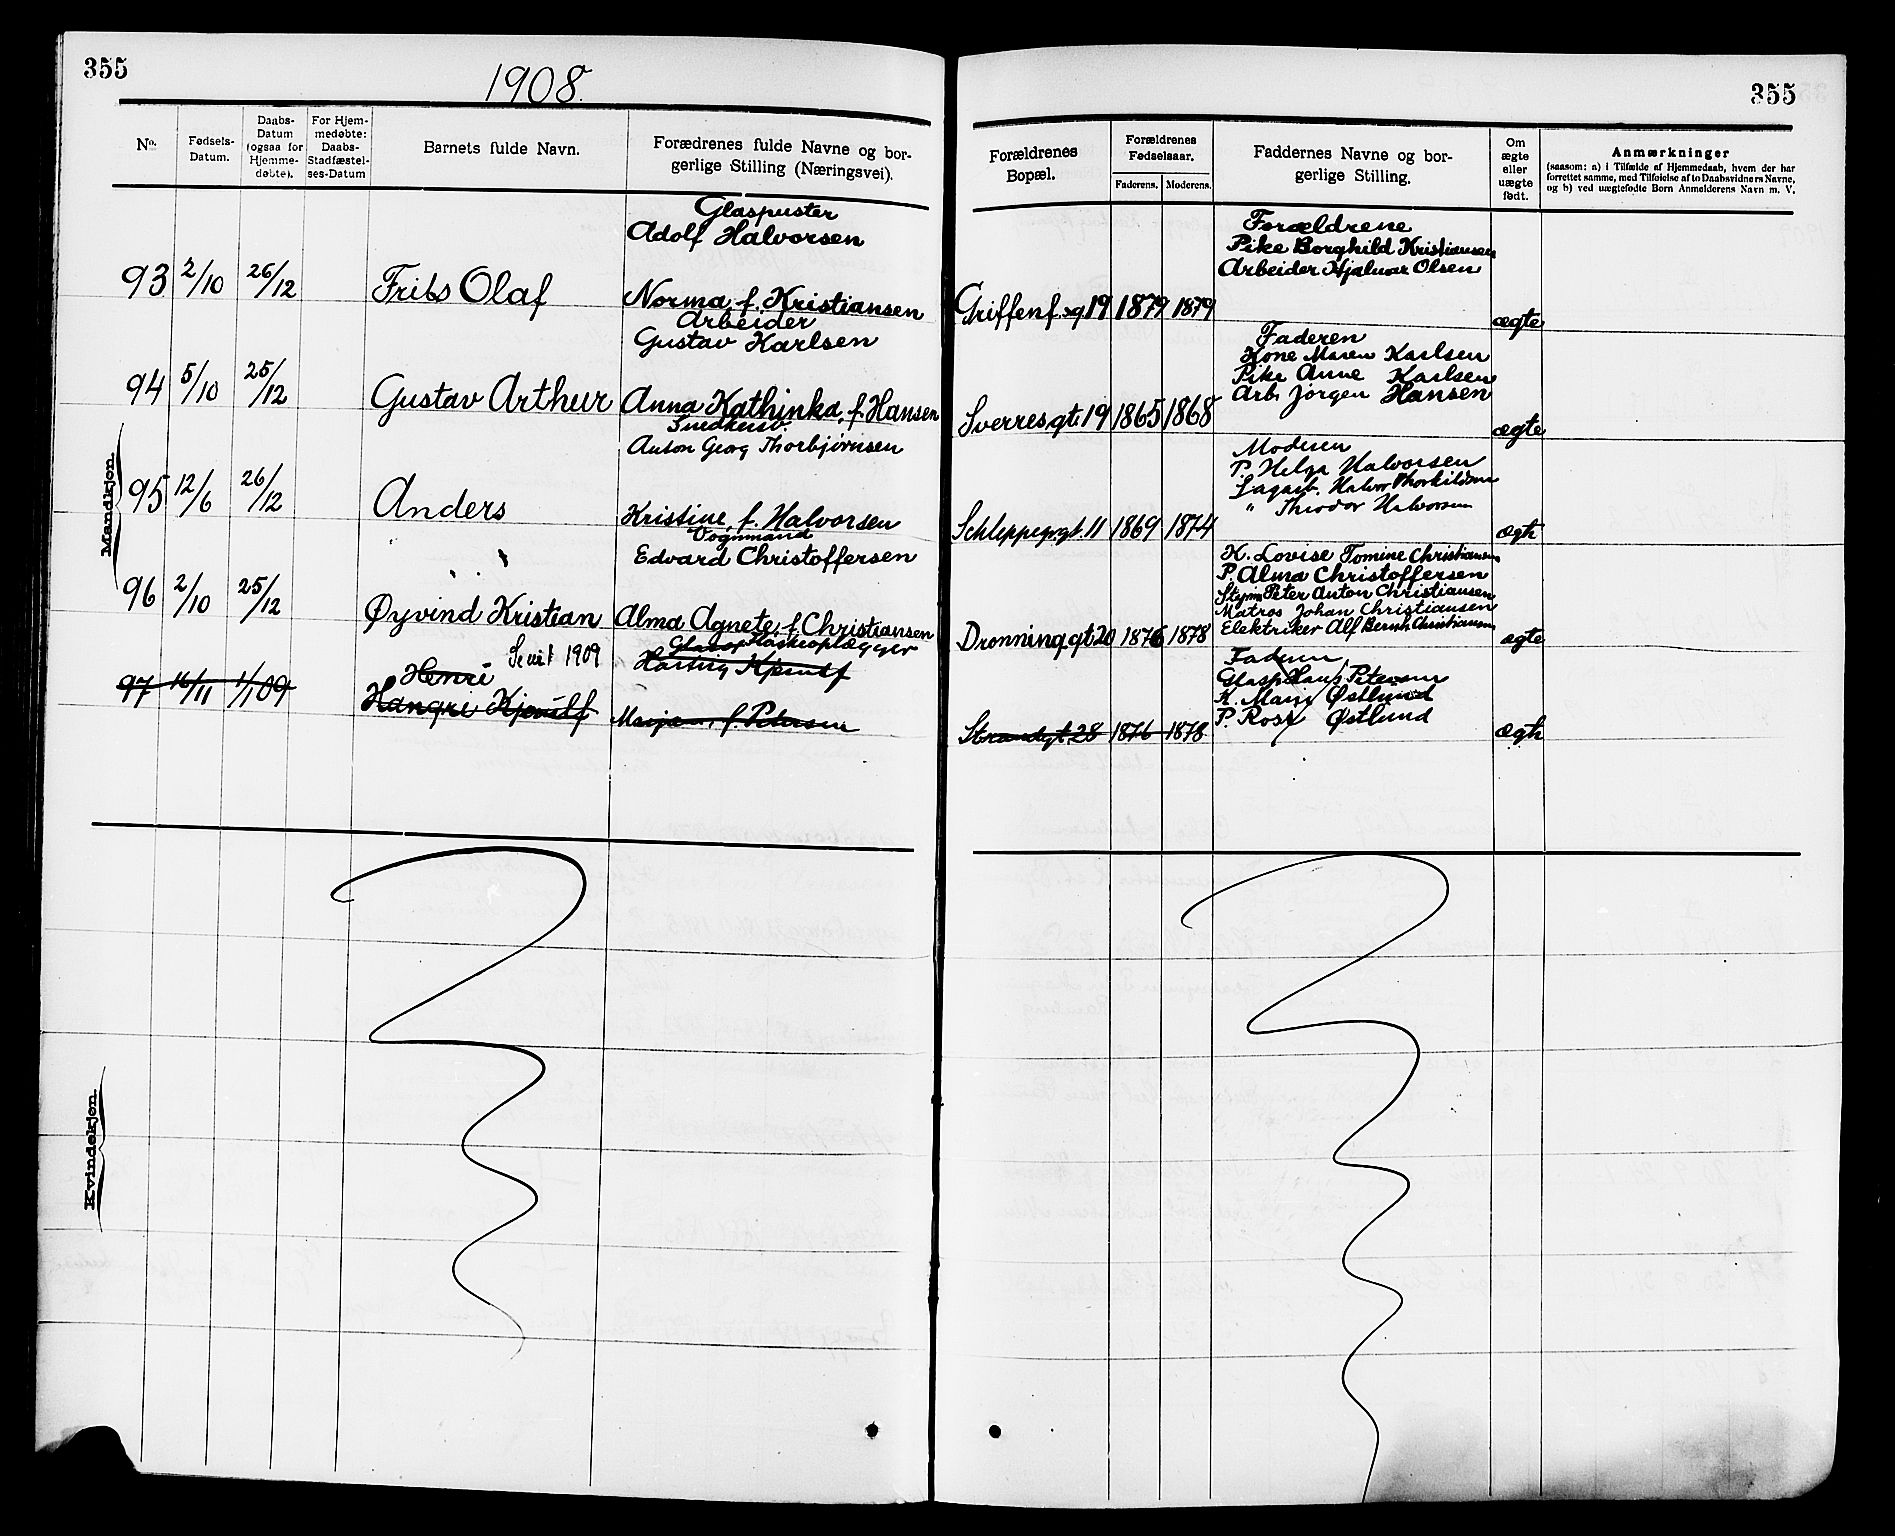 355
1908.
No.
Fødsels-
Datum.
Daabs-
Datum
(ogsaa for
Hjemme-
døbte).
For Hjem-
medøbte:
Daabs-
Stadfæstel-
ses-Datum
Barnets fulde Navn.
Forædrenes fulde Navne og bor-
gerlige Stilling (Næringsvei).
Mandkjøn.
Glaspuster
Adolf Halvorsen
93 2/10 26/12 Frits Olaf Norma, f. Kristiansen
Arbeider
Gustav Karlsen
94 5/10 25/12 Gustav Arthur Anna Kathinka, f. Hansen
Snedkersv.
Anton Georg Thorbjørnsen
95 12/6 26/12 Anders Kristine, f. Halvorsen
Vognmand
Edvard Christoffersen
96 2/10 25/12 Øyvind Kristian Alma Agnete, f. Christiansen
1909
Henri Kjerulf
97 16/11 1/1 09 Hangri Kjerulf f. Petersen
Kvindekjøn.
355
Forældrenes
Bopæl.
Forældrenes
Fødselsaar.
Faderens. Moderens.
Faddernes Navne og bor-
gerlige Stilling.
Om
ægte
eller
uægte
født.
Anmærkninger
(saasom: a) i Tilfælde af Hjemmedaab, hvem der har
forrettet samme, med Tilføielse af to Daabsvidners Navne,
og b) ved uægtefødte Børn Anmelderens Navn m. V.
Forældrene
Pike Borghild Kristiansen
Arbeider Hjalmar Olsen
Griffenf.sg 19 1879 1879 ægte
Faderen
Kone Maren Karlsen
Pike Anne Karlsen
Arb. Jørgen Hansen
Sverresgt. 19 1865 1868 ægte
Moderen
P. Helga Halvorsen
Lagarb. Halvor Thorkildsen
" Theodor Halvorsen
Schleppegrgt. 11 1869 1874 ægte
K. Lovise Tomine Christiansen
P. Alma Christoffersen
Styrm Peter Anton Christiansen
Matros Johan Christiansen
Elektriker Alf Bernh. Christiansen
Dronning.gt 20 1876 1878 ægte
Faderen
Glasp Hans Petersen
K. Marie Østlund
P. Rosa Østlund
Strandgt. 28 1876 1878 ægte